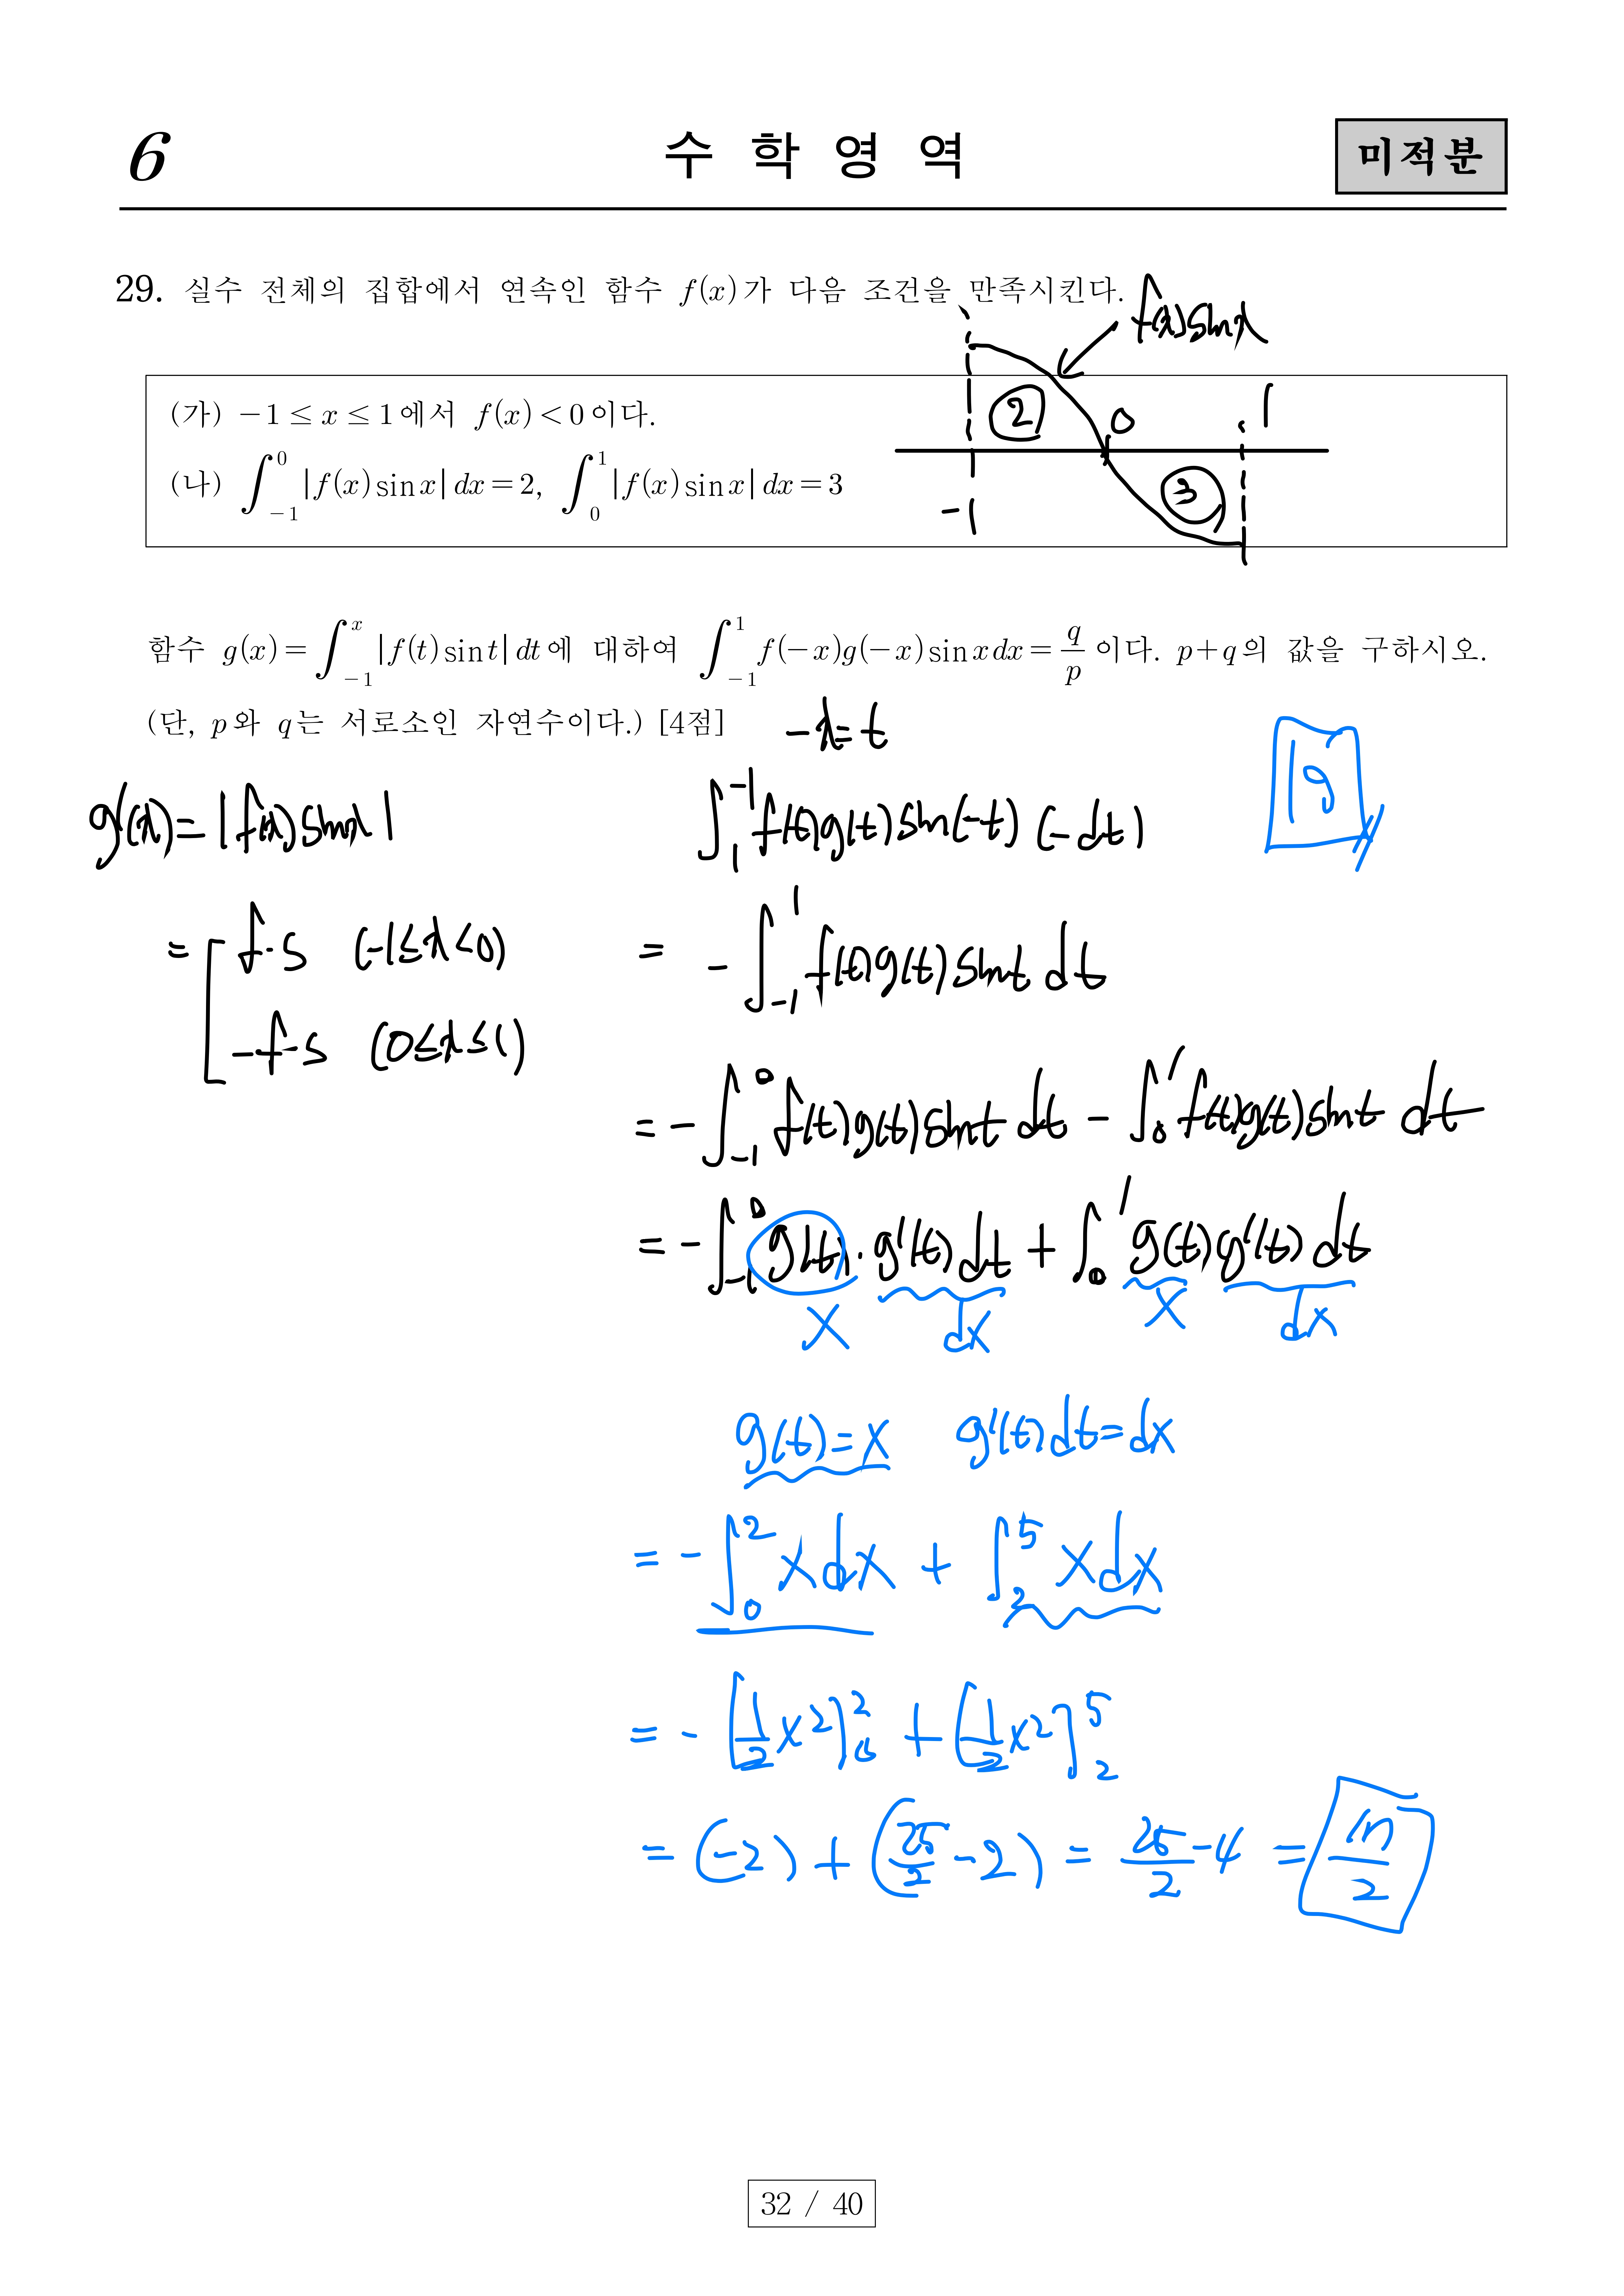 6
수 학 영 역
미적분
29. 실수 전체의 집합에서 연속인 함수 f(x)가 다음 조건을 만족시킨다.
f(x)sinx
(가) −1 ≤ x ≤ 1에서 f(x) < 0이다.
(나) ∫_{−1}^{0} |f(x)sinx| dx = 2, ∫_{0}^{1} |f(x)sinx| dx = 3
② 0 1
-1 ③
함수 g(x) = ∫_{−1}^{x} |f(t)sint| dt에 대하여 ∫_{−1}^{1} f(−x)g(−x)sinx dx = q/p 이다. p+q의 값을 구하시오.
(단, p와 q는 서로소인 자연수이다.) [4점]
-x=t
19
g'(x)=|f(x)sinx|
∫_{1}^{-1} f(t)g(t)sin(-t) (-dt)
= f·s (-1≤x<0)
-f·s (0≤x≤1)
= -∫_{-1}^{1} f(t)g(t)sint dt
= -∫_{-1}^{0} f(t)g(t)sint dt - ∫_{0}^{1} f(t)g(t)sint dt
= -∫_{-1}^{0} g(t)·g'(t)dt + ∫_{0}^{1} g(t)g'(t)dt
X dX X dX
g(t)=X g'(t)dt=dX
= -∫_{0}^{2} XdX + ∫_{2}^{5} XdX
= -[1/2 X²]_{0}^{2} + [1/2 X²]_{2}^{5}
= (-2) + (25/2 -2) = 25/2 -4 = 17/2
32 / 40